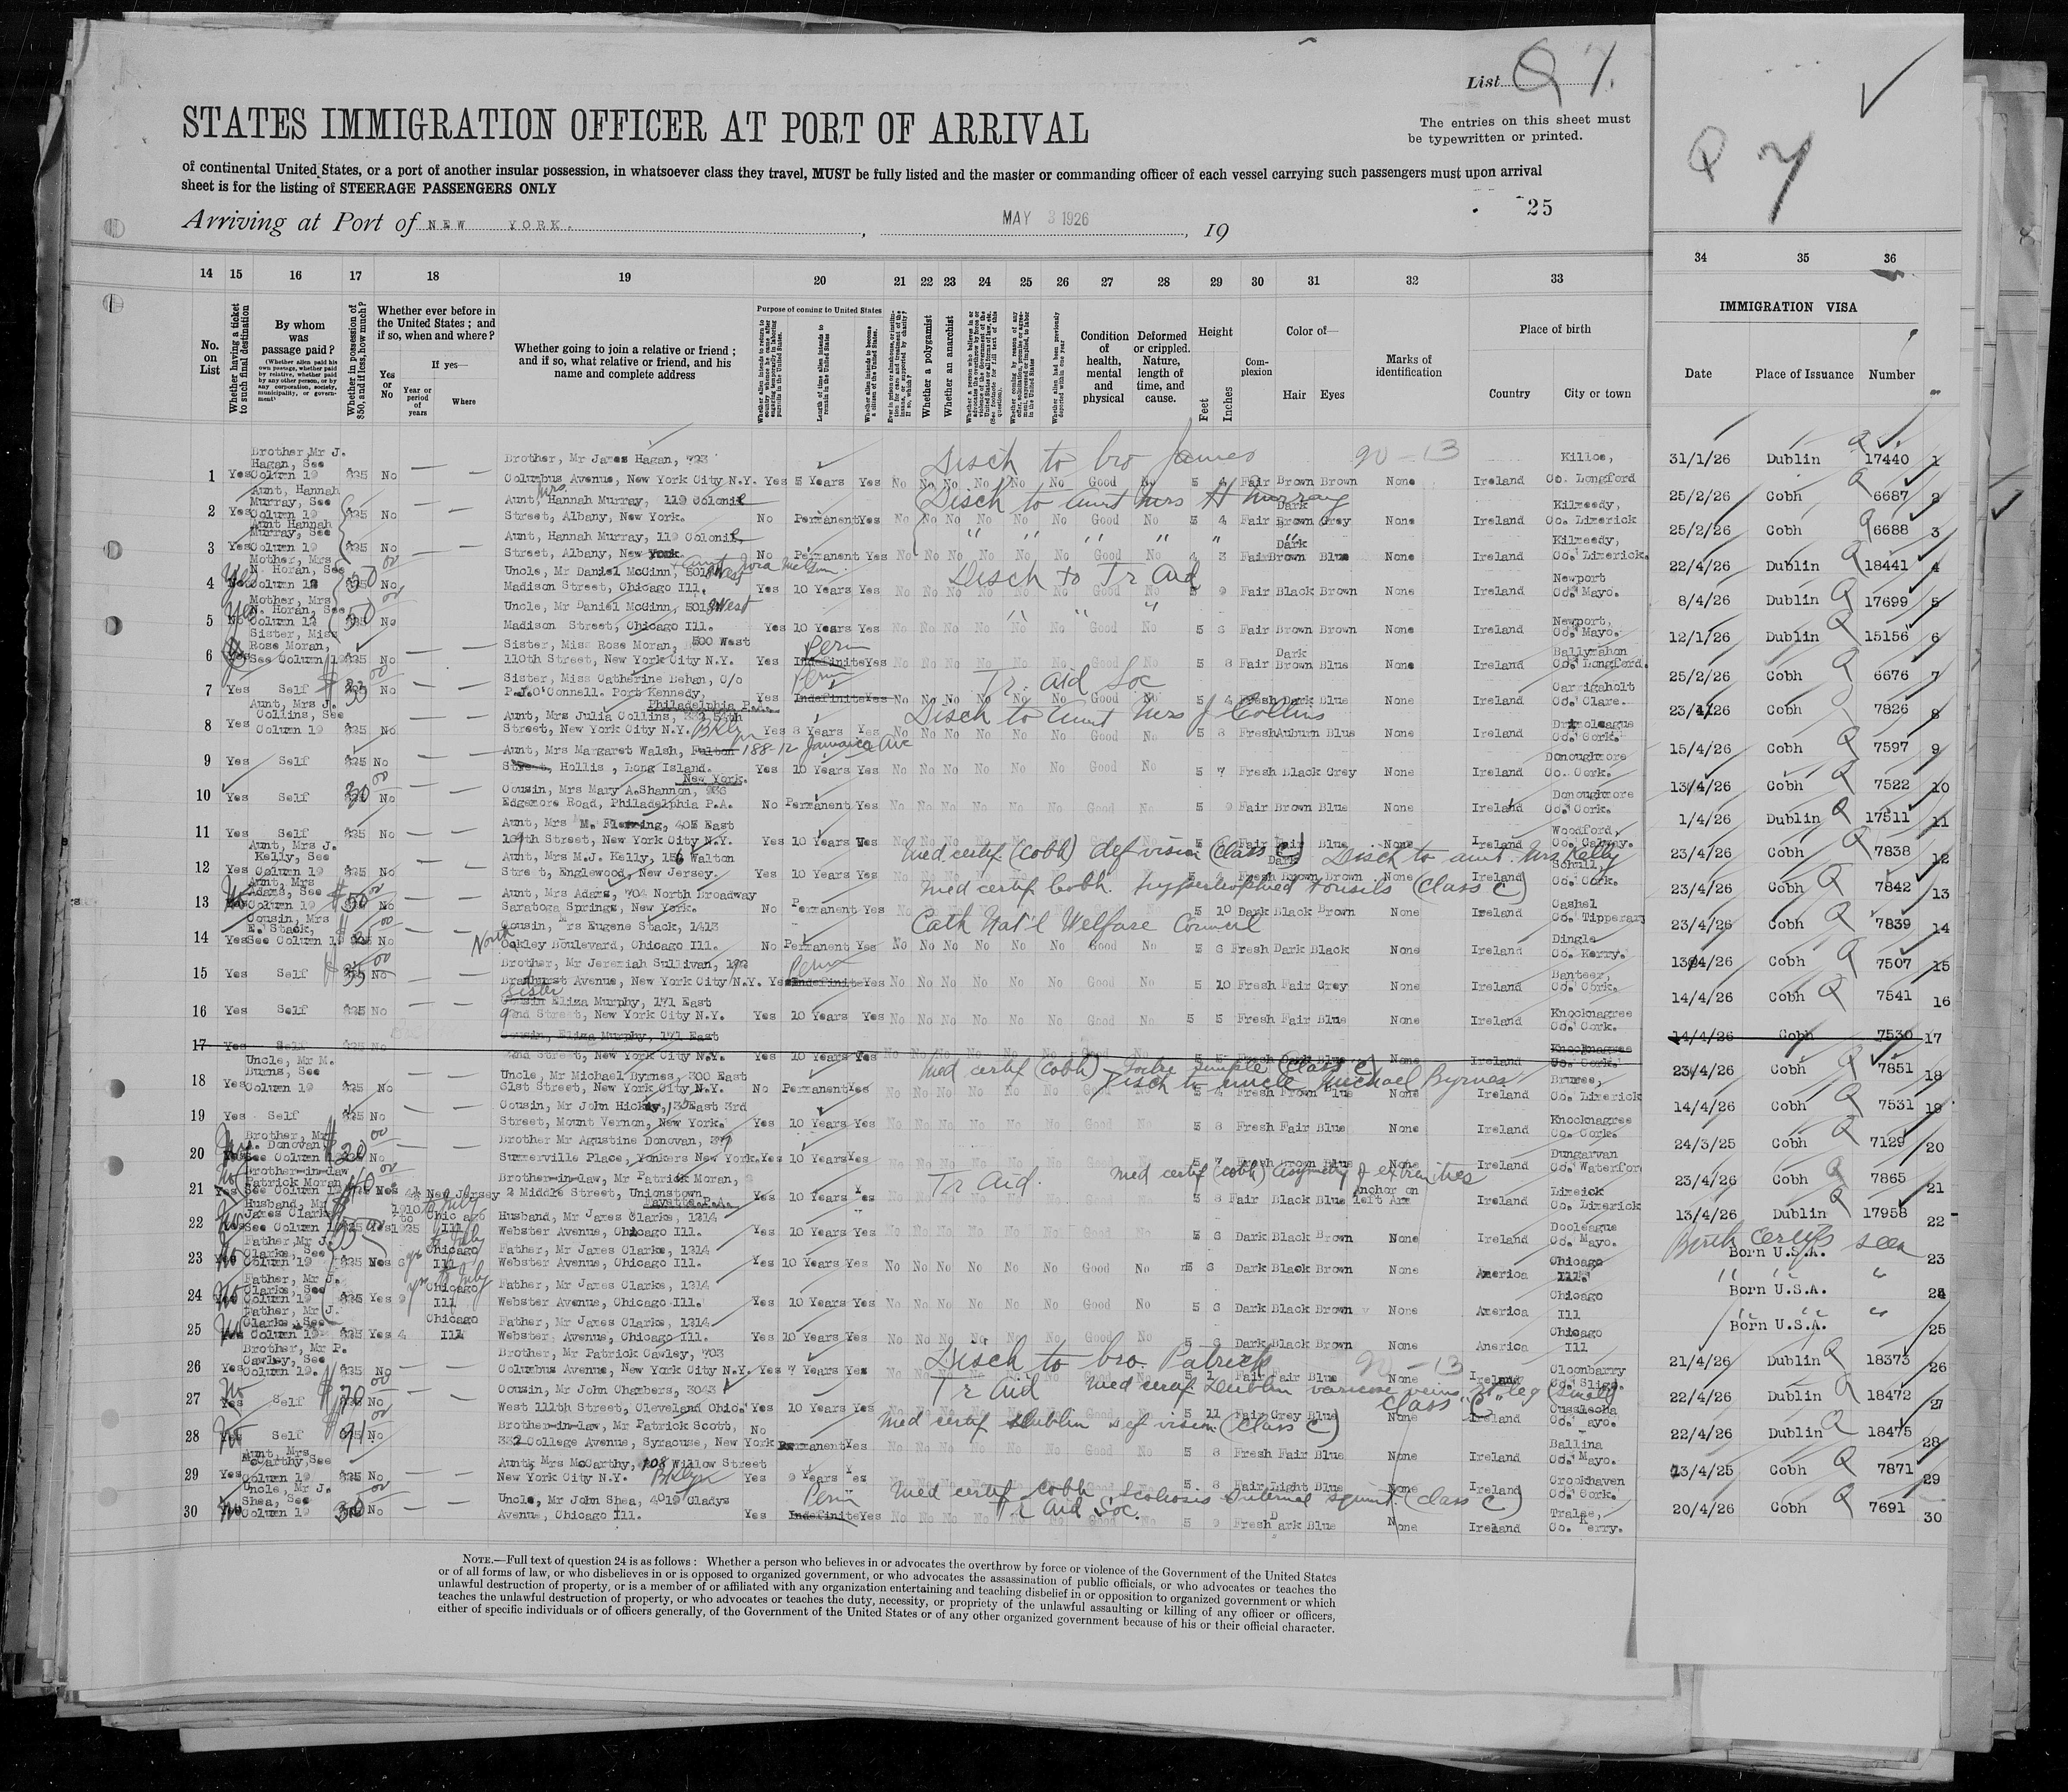 List Q 7.
STATES IMMIGRATION OFFICER AT PORT OF ARRIVAL
The entries on this sheet must
be typewritten or printed.
Q 7
of continental United States, or a port of another insular possession, in whatsoever class they travel, MUST be fully listed and the master or commanding officer of each vessel carrying such passengers must upon arrival
sheet is for the listing of STEERAGE PASSENGERS ONLY
25
Arriving at Port of NEW YORK. , MAY 3 1926 , 19
14 15 16 17 18 19 20 21 22 23 24 25 26 27 28 29 30 31 32 33 34 35 36
No. on List
Whether having a ticket to such final destination
By whom was passage paid?
Whether in possession of $50, and if less, how much?
Whether ever before in the United States; and if so, when and where?
Yes or No
If yes—
Year or period of years
Where
Whether going to join a relative or friend; and if so, what relative or friend, and his name and complete address
Purpose of coming to United States
Length of time alien intends to remain in the United States
Whether alien intends to become a citizen of the United States
Whether a polygamist
Whether an anarchist
Condition of health, mental and physical
Deformed or crippled. Nature, length of time, and cause.
Height
Feet
Inches
Complexion
Color of—
Hair Eyes
Marks of identification
Place of birth
Country
City or town
IMMIGRATION VISA
Date Place of Issuance Number
Disch to bro James
1 Yes Brother, Mr J. Hagan, See Column 19 $25 No — — Brother, Mr James Hagan, 793 Columbus Avenue, New York City N.Y. Yes 5 Years Yes No No No No No No Good No 5 4 Fair Brown Brown None Ireland Killoe, Co. Longford 31/1/26 Dublin 17440 1
Disch to aunt Mrs H Murray
2 Yes Aunt, Hannah Murray, See Column 19 $25 No — — Aunt Mrs Hannah Murray, 119 Colonie Street, Albany, New York. No Permanent Yes No No No No No No Good No 5 4 Fair Dark Brown Grey None Ireland Kilmeedy, Co. Limerick 25/2/26 Cobh 6687 2
3 Yes Aunt Hannah Murray, See Column 19 $25 No — — Aunt, Hannah Murray, 119 Colonie Street, Albany, New York. No Permanent Yes No No No No No No Good No 4 3 Fair Dark Brown Blue None Ireland Kilmeedy, Co. Limerick. 25/2/26 Cobh 6688 3
Disch to Tr Aid
4 Yes Mother, Mrs N. Horan, See Column 12 50 No — — Uncle, Mr Daniel McGinn, 5019 West Madison Street, Chicago Ill. Yes 10 Years Yes No No No No No No Good No 5 9 Fair Black Brown None Ireland Newport Co. Mayo. 22/4/26 Dublin 18441 4
5 Yes Mother, Mrs N. Horan, See Column 12 50 No — — Uncle, Mr Daniel McGinn, 5019 West Madison Street, Chicago Ill. Yes 10 Years Yes No No No No No No Good No 5 6 Fair Brown Brown None Ireland Newport, Co. Mayo. 8/4/26 Dublin 17699 5
6 Yes Sister, Miss Rose Moran, See Column 19 $25 No — — Sister, Miss Rose Moran, 500 West 110th Street, New York City N.Y. Yes Indefinite Perm Yes No No No No No No Good No 5 8 Fair Dark Brown Blue None Ireland Ballymahon Co. Longford. 12/1/26 Dublin 15156 6
Tr. Aid Soc
7 Yes Self No — — Sister, Miss Catherine Behan, C/o P.J.O'Connell. Port Kennedy, Philadelphia P.A. Yes Indefinite Perm Yes No No No No No No Good No 5 4 Fresh Dark Blue None Ireland Carrigaholt Co. Clare. 25/2/26 Cobh 6676 7
Disch to aunt Mrs J Collins
8 Yes Aunt, Mrs J. Collins, See Column 19 $25 No — — Aunt, Mrs Julia Collins, 332 54th Street, New York City N.Y. Bklyn Yes 8 Years Yes No No No No No No Good No 5 8 Fresh Auburn Blue None Ireland Drimoleague Co. Cork. 23/4/26 Cobh 7826 8
9 Yes Self $25 No — — Aunt, Mrs Margaret Walsh, Fulton 188-12 Jamaica Ave Street, Hollis, Long Island. New York. Yes 10 Years Yes No No No No No No Good No 5 7 Fresh Black Grey None Ireland Donoughmore Co. Cork. 15/4/26 Cobh 7597 9
10 Yes Self 30 No — — Cousin, Mrs Mary A.Shannon, 936 Edgemore Road, Philadelphia P.A. No Permanent Yes No No No No No No Good No 5 9 Fair Brown Blue None Ireland Donoughmore Co. Cork. 13/4/26 Cobh 7522 10
11 Yes Self $25 No — — Aunt, Mrs M. Fleming, 405 East 109th Street, New York City N.Y. Yes 10 Years Yes No No No No No No Good No 5 Fair Fair Blue None Ireland Woodford, Co. Galway. 1/4/26 Dublin 17511 11
Med certif (Cobh) def vision (Class C) Disch to aunt Mrs Kelly
12 Yes Aunt, Mrs J. Kelly, See Column 19 $25 No — — Aunt, Mrs M.J. Kelly, 156 Walton Street, Englewood, New Jersey. Yes 10 Years Yes No No No No No No Good No 5 4 Fresh Dark Brown Brown None Ireland Co. Cork. 23/4/26 Cobh 7838 12
Med certif Cobh. Hypertrophied tonsils (Class C)
13 No Aunt, Mrs Adams, See Column 19 $50 No — — Aunt, Mrs Adams, 704 North Broadway Saratoga Springs, New York. No Permanent Yes 5 10 Dark Black Brown None Ireland Cashel Co. Tipperary 23/4/26 Cobh 7842 13
Cath Nat'l Welfare Council
14 Yes Cousin, Mrs E. Stack, See Column 19 No — — Cousin, Mrs Eugene Stack, 1413 North Oakley Boulevard, Chicago Ill. No Permanent Yes No No No No No No Good No 5 6 Fresh Dark Black None Ireland Dingle Co. Kerry. 23/4/26 Cobh 7839 14
15 Yes Self No — — Brother, Mr Jeremiah Sullivan, Bradhurst Avenue, New York City N.Y. Yes Indefinite Perm Yes No No No No No No Good No 5 10 Fresh Fair Grey None Ireland Banteer, Co. Cork. 13/4/26 Cobh 7507 15
16 Yes Self $25 No — — Cousin Sister Eliza Murphy, 171 East 92nd Street, New York City N.Y. Yes 10 Years Yes No No No No No No Good No 5 5 Fresh Fair Blue None Ireland Knocknagree Co. Cork. 14/4/26 Cobh 7541 16
17 Yes Self $25 No Cousin, Eliza Murphy, 171 East 92nd Street, New York City N.Y. Yes 10 Years Yes Fresh Dark Blue None Ireland Knocknagree Co. Cork. 14/4/26 Cobh 7530 17
Med certif (Cobh) Goitre simple (Class C)
Disch to uncle Michael Byrnes
18 Yes Uncle, Mr M. Burns, See Column 19 $25 No — — Uncle, Mr Michael Byrnes, 300 East 61st Street, New York City N.Y. No Permanent Yes No No No No No No Good No 5 4 Fresh Brown Blue None Ireland Bruree, Co. Limerick 23/4/26 Cobh 7851 18
19 Yes Self $25 No — — Cousin, Mr John Hickey, East 3rd Street, Mount Vernon, New York. Yes 10 Years Yes No No No No No No Good No 5 8 Fresh Fair Blue None Ireland Knocknagree Co. Cork. 14/4/26 Cobh 7531 19
20 No Brother, Mr A. Donovan See Column 19 $20 No — — Brother Mr Agustine Donovan, 39 Summerville Place, Yonkers New York. Yes 10 Years Yes 5 7 Fresh Brown Blue None Ireland Dungarvan Co. Waterford 24/3/25 Cobh 7129 20
Tr Aid. Med certif (Cobh) asymetry of extremities
21 No Brother-in-law Patrick Moran See Column 19 $40 New Jersey Brother-in-law, Mr Patrick Moran, 2 Middle Street, Unionstown Fayette P.A. Yes 10 Years Yes 5 8 Fair Black Blue Anchor on left Arm Ireland Limerick Co. Limerick 23/4/26 Cobh 7865 21
22 No Husband, Mr James Clarke See Column 19 1910 to 1925 Chicago Ill Husband, Mr James Clarke, 1214 Webster Avenue, Chicago Ill. Yes 10 Years Yes 5 6 Dark Black Brown None Ireland Dooleague Co. Mayo. 13/4/26 Dublin 17958 22
Birth certifs seen
23 No Father, Mr J. Clarke, See Column 19 $25 Yes 6 Chicago Ill Father, Mr James Clarke, 1214 Webster Avenue, Chicago Ill. Yes 10 Years Yes No No No No No No Good No Dark Black Brown None America Chicago Ill. Born U.S.A. 23
24 No Father, Mr J. Clarke, See Column 19 $25 Yes 9 Chicago Ill Father, Mr James Clarke, 1214 Webster Avenue, Chicago Ill. Yes 10 Years Yes No No No No No No Good No 5 6 Dark Black Brown None America Chicago Ill Born U.S.A. " 24
25 No Father, Mr J. Clarke, See Column 19 $25 Yes 4 Chicago Ill Father, Mr James Clarke, 1214 Webster Avenue, Chicago Ill. Yes 10 Years Yes No No No No No No Good No 5 6 Dark Black Brown None America Chicago Ill Born U.S.A. " 25
Disch to bro. Patrick
26 Yes Brother, Mr P. Cawley, See Column 19. $25 No — — Brother, Mr Patrick Cawley, 793 Columbus Avenue, New York City N.Y. Yes 7 Years Yes Fair Fair Blue None Ireland Cloonbarry Co. Sligo. 21/4/26 Dublin 18373 26
Tr Aid Med certif Dublin varicose veins leg (small) Class C
27 No Self $70 No — — Cousin, Mr John Chambers, 3043 West 111th Street, Cleveland Ohio. Yes 10 Years Yes 5 11 Fair Grey Blue Ireland 22/4/26 Dublin 18472 27
Med certif Dublin def vision (Class C)
28 No Self No. Brother-in-law, Mr Patrick Scott, 332 College Avenue, Syracuse, New York No Permanent Yes 5 8 Fresh Fair Blue None Ireland Ballina Co. Mayo. 22/4/26 Dublin 18475 28
29 Yes Aunt, Mrs McCarthy, See Column 19 $25 No — — Aunt, Mrs McCarthy, 108 Willow Street New York City N.Y. Bklyn Yes 9 Years Yes 5 8 Fair Light Blue None Ireland Crookhaven Co. Cork. 23/4/25 Cobh 7871 29
Med certif Cobh. Scoliosis internal squint. (Class C)
Tr Aid Soc.
30 No Uncle, Mr J. Shea, See Column 19 30 No — — Uncle, Mr John Shea, 4019 Gladys Avenue, Chicago Ill. Yes Indefinite Perm Yes 5 9 Fresh Dark Blue None Ireland Tralee, Co. Kerry. 20/4/26 Cobh 7691 30
NOTE.—Full text of question 24 is as follows: Whether a person who believes in or advocates the overthrow by force or violence of the Government of the United States
or of all forms of law, or who disbelieves in or is opposed to organized government, or who advocates the assassination of public officials, or who advocates or teaches the
unlawful destruction of property, or is a member of or affiliated with any organization entertaining and teaching disbelief in or opposition to organized government or which
teaches the unlawful destruction of property, or who advocates or teaches the duty, necessity, or propriety of the unlawful assaulting or killing of any officer or officers,
either of specific individuals or of officers generally, of the Government of the United States or of any other organized government because of his or their official character.